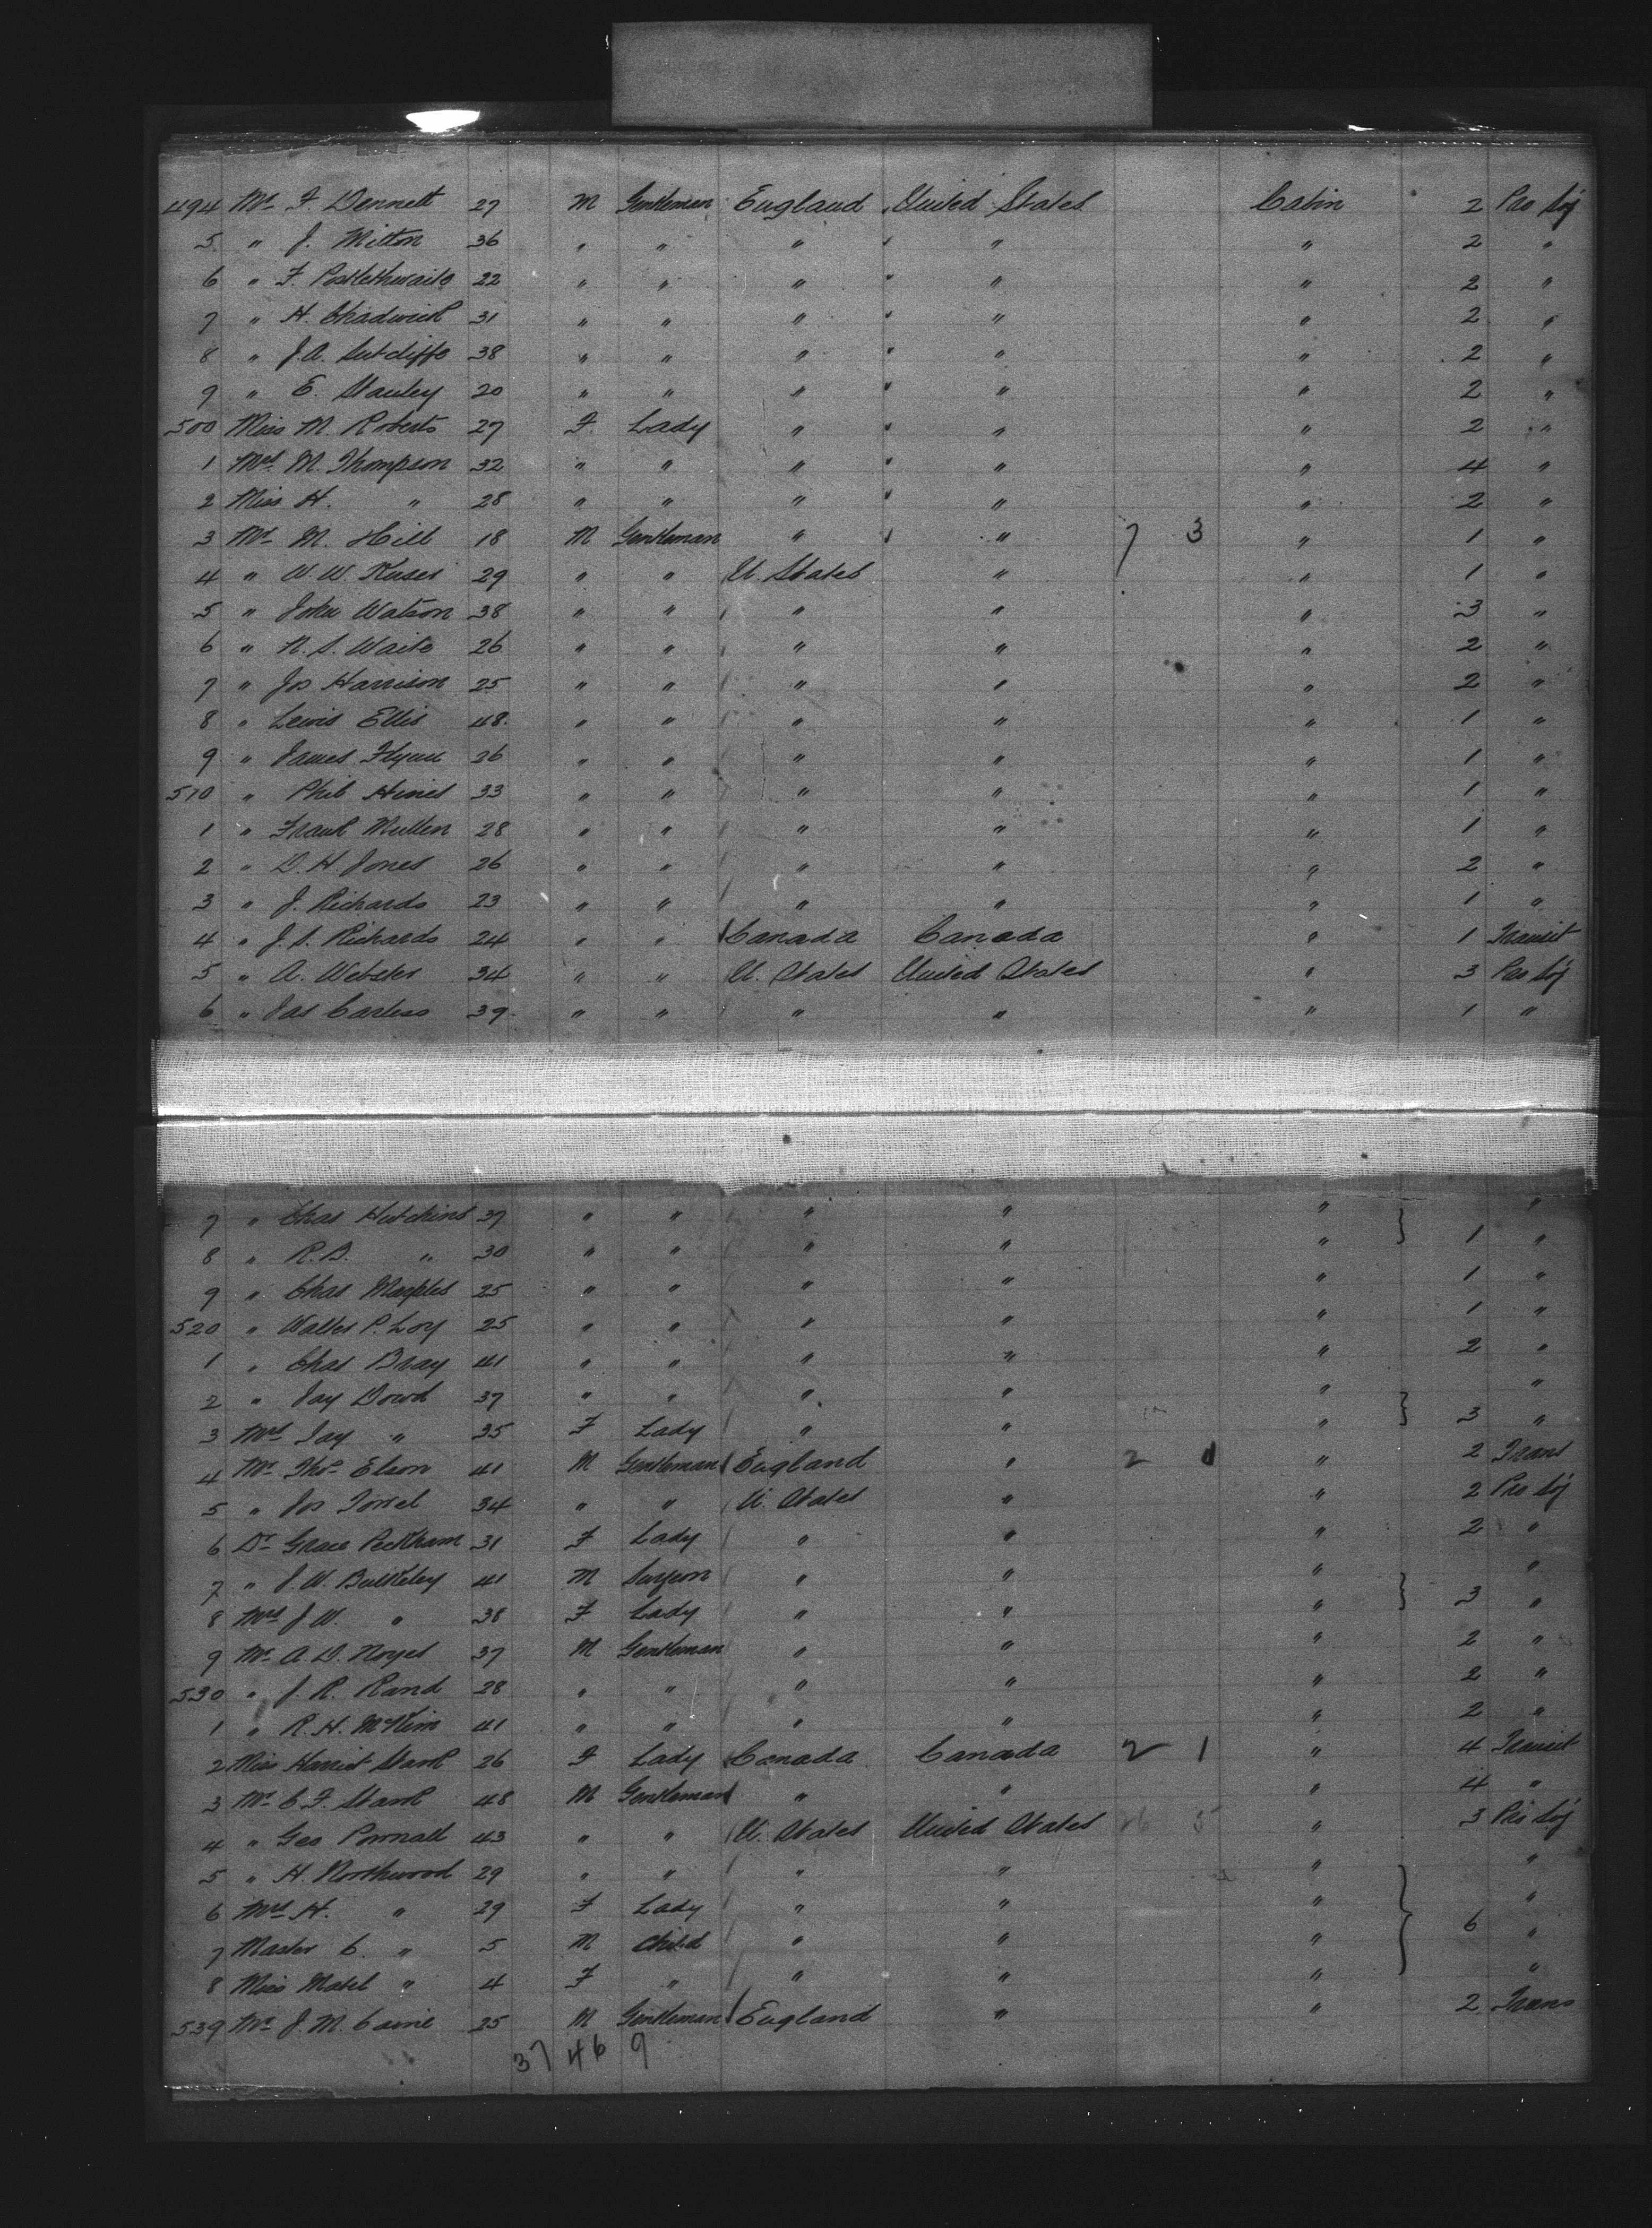 494 Mr F Dennett 27 M Gentleman England United States Cabin 2 Pro Soj
5 " J. Milton 36 " " " " " 2 "
6 " F. Postlethwaite 22 " " " " " 2 "
7 " H. Chadwick 31 " " " " " 2 "
8 " J.A. Sutcliffe 38 " " " " " 2 "
9 " E. Stanley 20 " " " " " 2 "
500 Miss M. Roberts 27 F. Lady " " " 2 "
1 Mrs M. Thompson 32 " " " " " 4 "
2 Miss H. " 28 " " " " " 2 "
3 Mr M. Hill 18 M Gentleman " " 7 3 " 1 "
4 " W. W. 29 " " U. States " " 1 "
5 " John Watson 38 " " " " " 3 "
6 " N. S. Waite 26 " " " " " 2 "
7 " Jos Harrison 25 " " " " " 2 "
8 " Lewis Ellis 48 " " " " " 1 "
9 " James Flynn 26 " " " " " 1 "
510 " Phil Hines 33 " " " " " 1 "
1 " Frank Mullen 28 " " " " " 1 "
2 " D. H. Jones 26 " " " " " 2 "
3 " J. Richards 23 " " " " " 1 "
4 " J. S. Richards 24 " " Canada Canada " 1 Transit
5 " A. Webster 34 " " U. States United States " 3 Pro Soj
6 " Jas Carless 39 " " " " " 1 "
7 " Chas Hutchins 37 " " " " " "
8 " R. B. " 30 " " " " " } 1 "
9 " Chas Mapples 25 " " " " " 1 "
520 " Walter P. Loy 25 " " " " " 1 "
1 " Chas Bray 41 " " " " " 2 "
2 " Jay Dowd 37 " " " " " "
3 Mrs Jay " 35 F Lady " " " } 3 "
4 Mr Thos Elson 41 M Gentleman England " 2 1 " 2 Trans
5 " Jos 34 " " U. States " " 2 Pro Soj
6 Dr Grace Peckham 31 F Lady " " " 2 "
7 " J. W. Bulkeley 41 M Surgeon " " " "
8 Mrs J W. " 38 F Lady " " " } 3 "
9 Mr A. D. Noyes 37 M Gentleman " " " 2 "
530 " J. R. Rand 28 " " " " " 2 "
1 " R. H. McKim 41 " " " " " 2 "
2 Miss Harriet Stark 26 F Lady Canada Canada 2 1 " 4 Transit
3 Mr C. F. Stark 48 M Gentleman " " " 4 "
4 " Geo Pownall 43 " " U. States United States 26 5 " 3 Pro Soj
5 " H. Northwood 29 " " " " " "
6 Mrs H. " 29 F Lady " " " "
7 Master C. " 5 M Child " " " } 6 "
8 Miss Mabel " 4 F " " " " "
539 Mr J. M. Caine 25 M Gentleman England " " 2 Trans
37 46 9